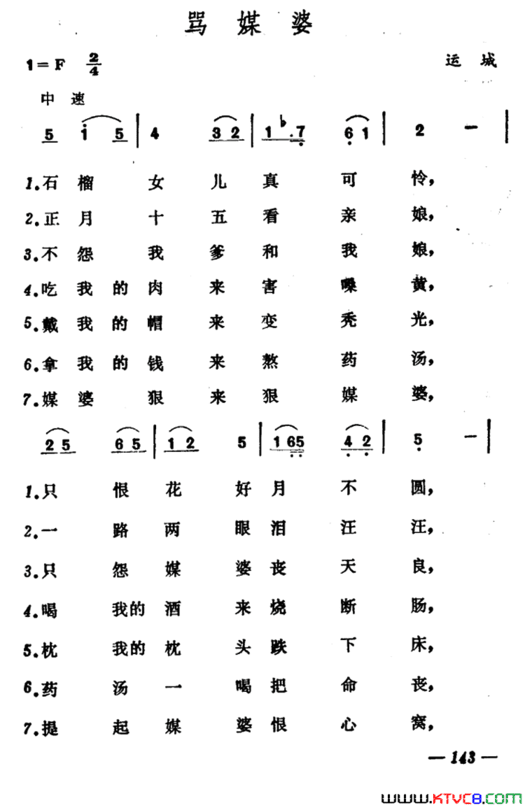 骂媒婆
1=F 2/4
运城
中速
5 i 5 | 4 3 2 | 1 ♭.7 6 1 | 2 — |
1.石榴女儿真可怜，
2.正月十五看亲娘，
3.不怨我爹和我娘，
4.吃我的肉来害嗓黄，
5.戴我的帽来变秃光，
6.拿我的钱来熬药汤，
7.媒婆狠来狠媒婆，
2 5 6 5 | 1 2 5 | 1 6 5 4 2 | 5 — |
1.只恨花好月不圆，
2.一路两眼泪汪汪，
3.只怨媒婆丧天良，
4.喝我的酒来烧断肠，
5.枕我的枕头跌下床，
6.药汤一喝把命丧，
7.提起媒婆恨心窝，
— 143 —
www.KTVC8.com